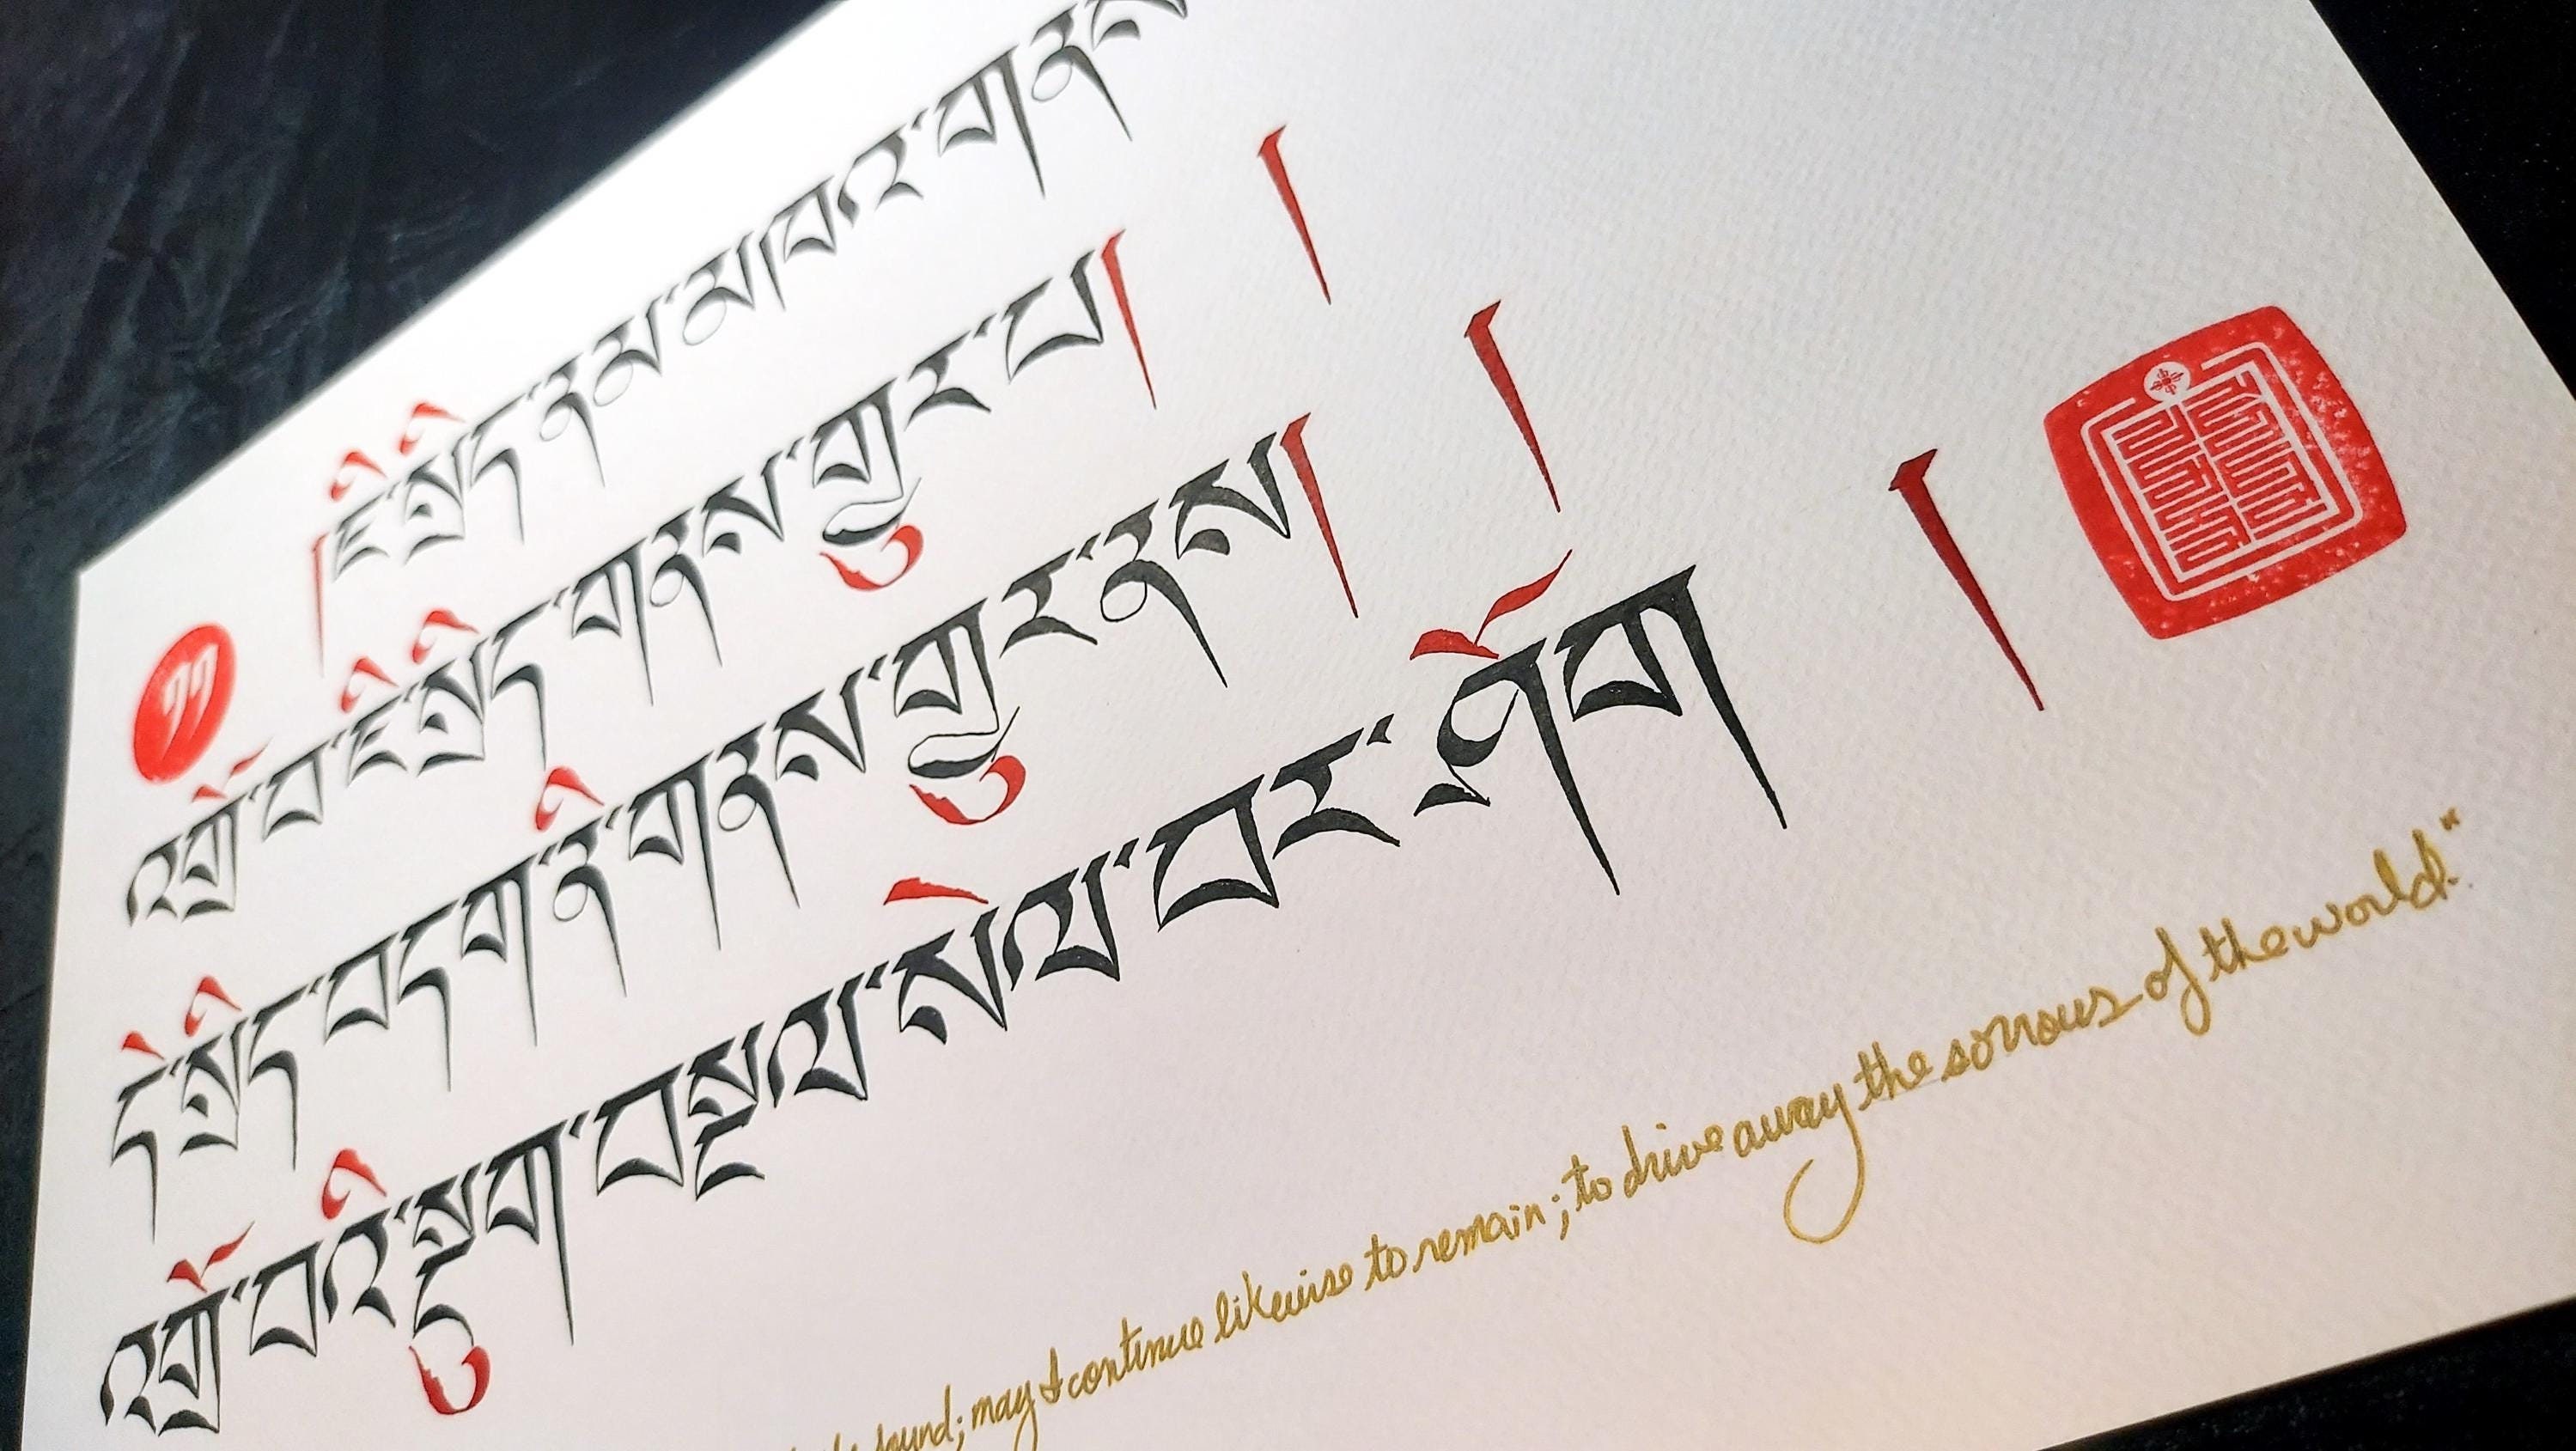 །ཇི་སྲིད་ནམ་མཁའ་གནས
འགྲོ་བ་ཇི་སྲིད་གནས་གྱུར་པ། །
དེ་སྲིད་བདག་ནི་གནས་གྱུར་ནས། །
འགྲོ་བའི་སྡུག་བསྔལ་སེལ་བར་ཤོག །
found; may I continue likewise to remain; to drive away the sorrows of the world."